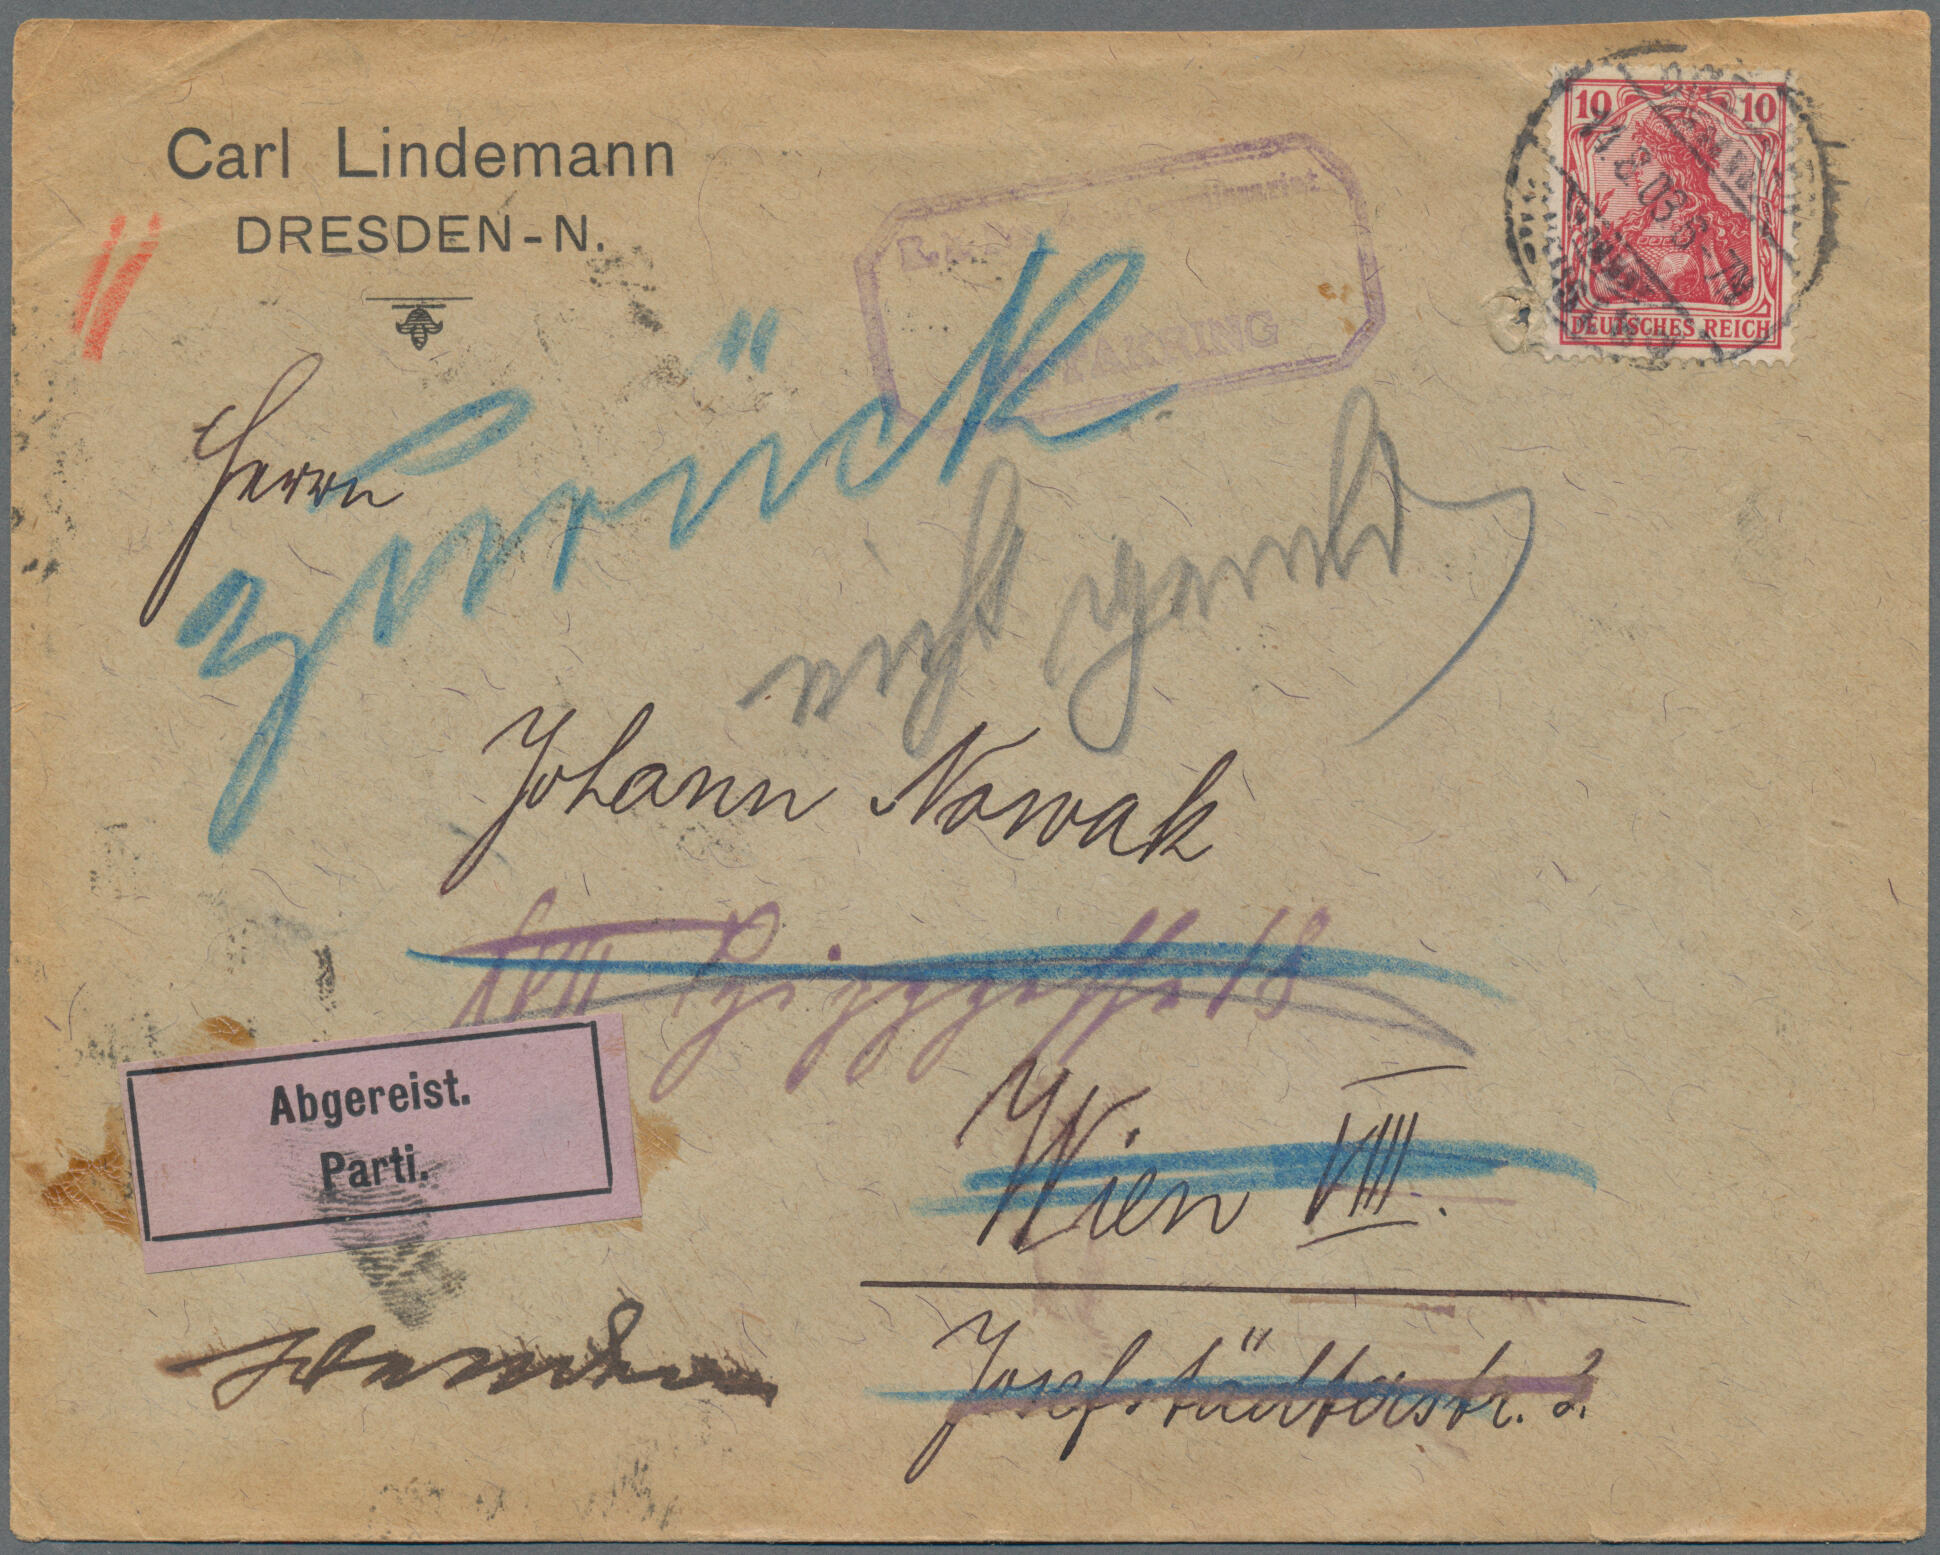 Carl Lindemann
DRESDEN-N.
10 10
DEUTSCHES REICH
Herrn
zurück
nicht
Johann Nowak
18
Wien VIII.
Josefstädterstr. 2.
Abgereist.
Parti.